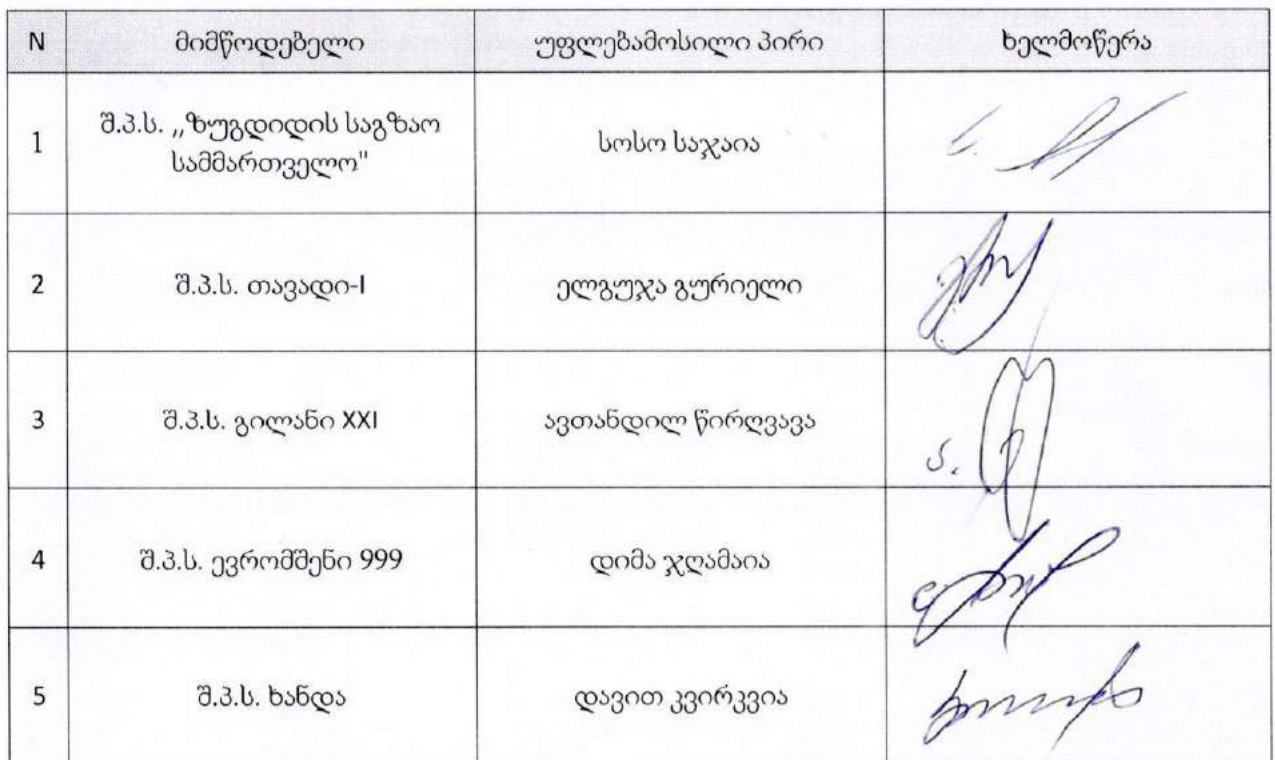 N მიმწოდებელი უფლებამოსილი პირი ხელმოწერა
1 შ.პ.ს. ,,ზუგდიდის საგზაო სამმართველო" სოსო საჯაია
2 შ.პ.ს. თავადი-I ელგუჯა გურიელი
3 შ.პ.ს. გილანი XXI ავთანდილ წირღვავა
4 შ.პ.ს. ევრომშენი 999 დიმა ჯღამაია
5 შ.პ.ს. ხანდა დავით კვირკვია